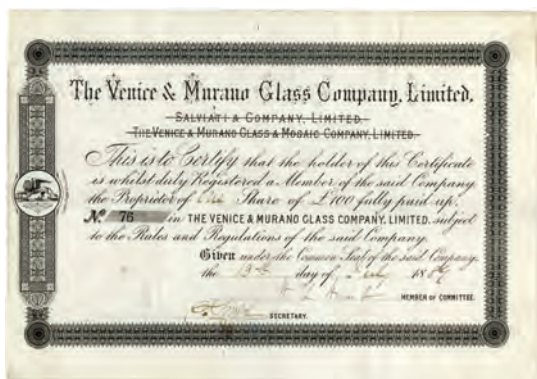 The Venice & Murano Glass Company, Limited.
SALVIATI & COMPANY, LIMITED.
THE VENICE & MURANO GLASS & MOSAIC COMPANY, LIMITED.
This is to Certify that the holder of this Certificate
is whilst duly Registered a Member of the said Company
the Proprietor of One Share of £100 fully paid up.
No 76 in THE VENICE & MURANO GLASS COMPANY, LIMITED. subject
to the Rules and Regulations of the said Company.
Given under the Common Seal of the said Company
the 19th day of July 18
MEMBER OF COMMITTEE.
SECRETARY.